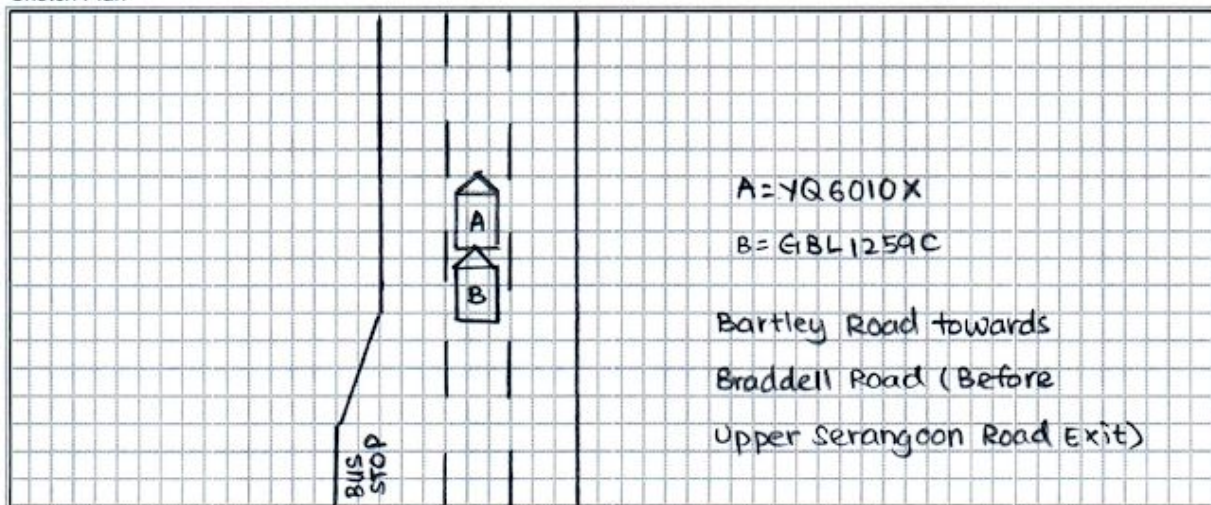 A
B
BUS
STOP
A=YQ6010X
B=GBL1259C
Bartley Road towards
Braddell Road (Before
Upper Serangoon Road Exit)